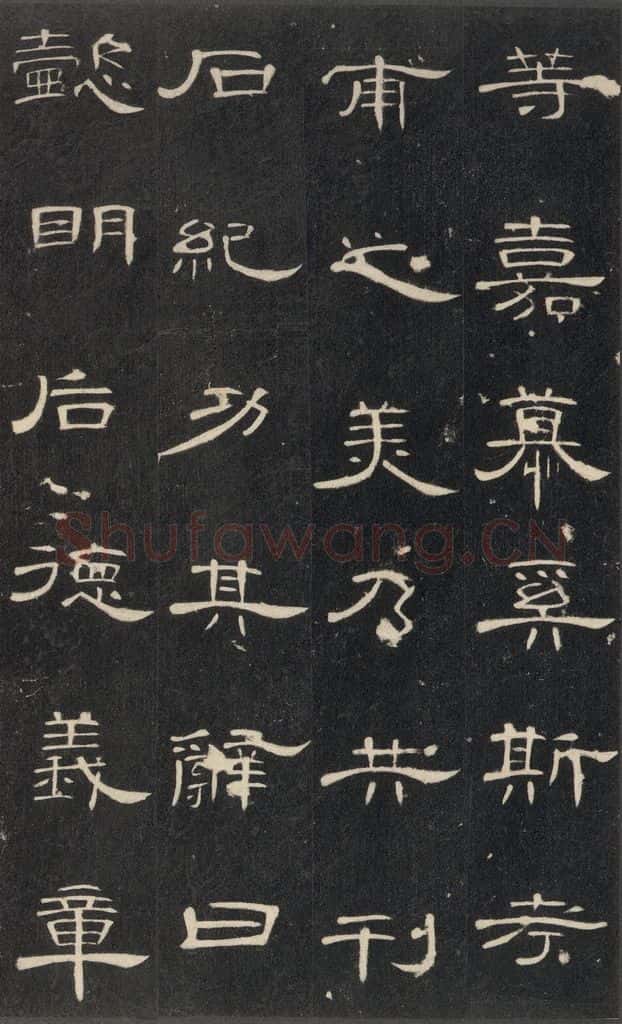 等嘉慕奚斯考
甫之美乃共刊
石紀功其辭曰
懿明后德義章
Shufawang.CN